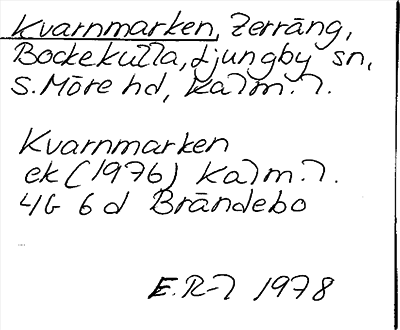 Kvarnmarken, Terräng,
Bockekulla, Ljungby sn,
S. Möre hd, Kalm. l.
Kvarnmarken
ek (1976) Kalm. l.
4G 6d Brändebo
E.R-l 1978